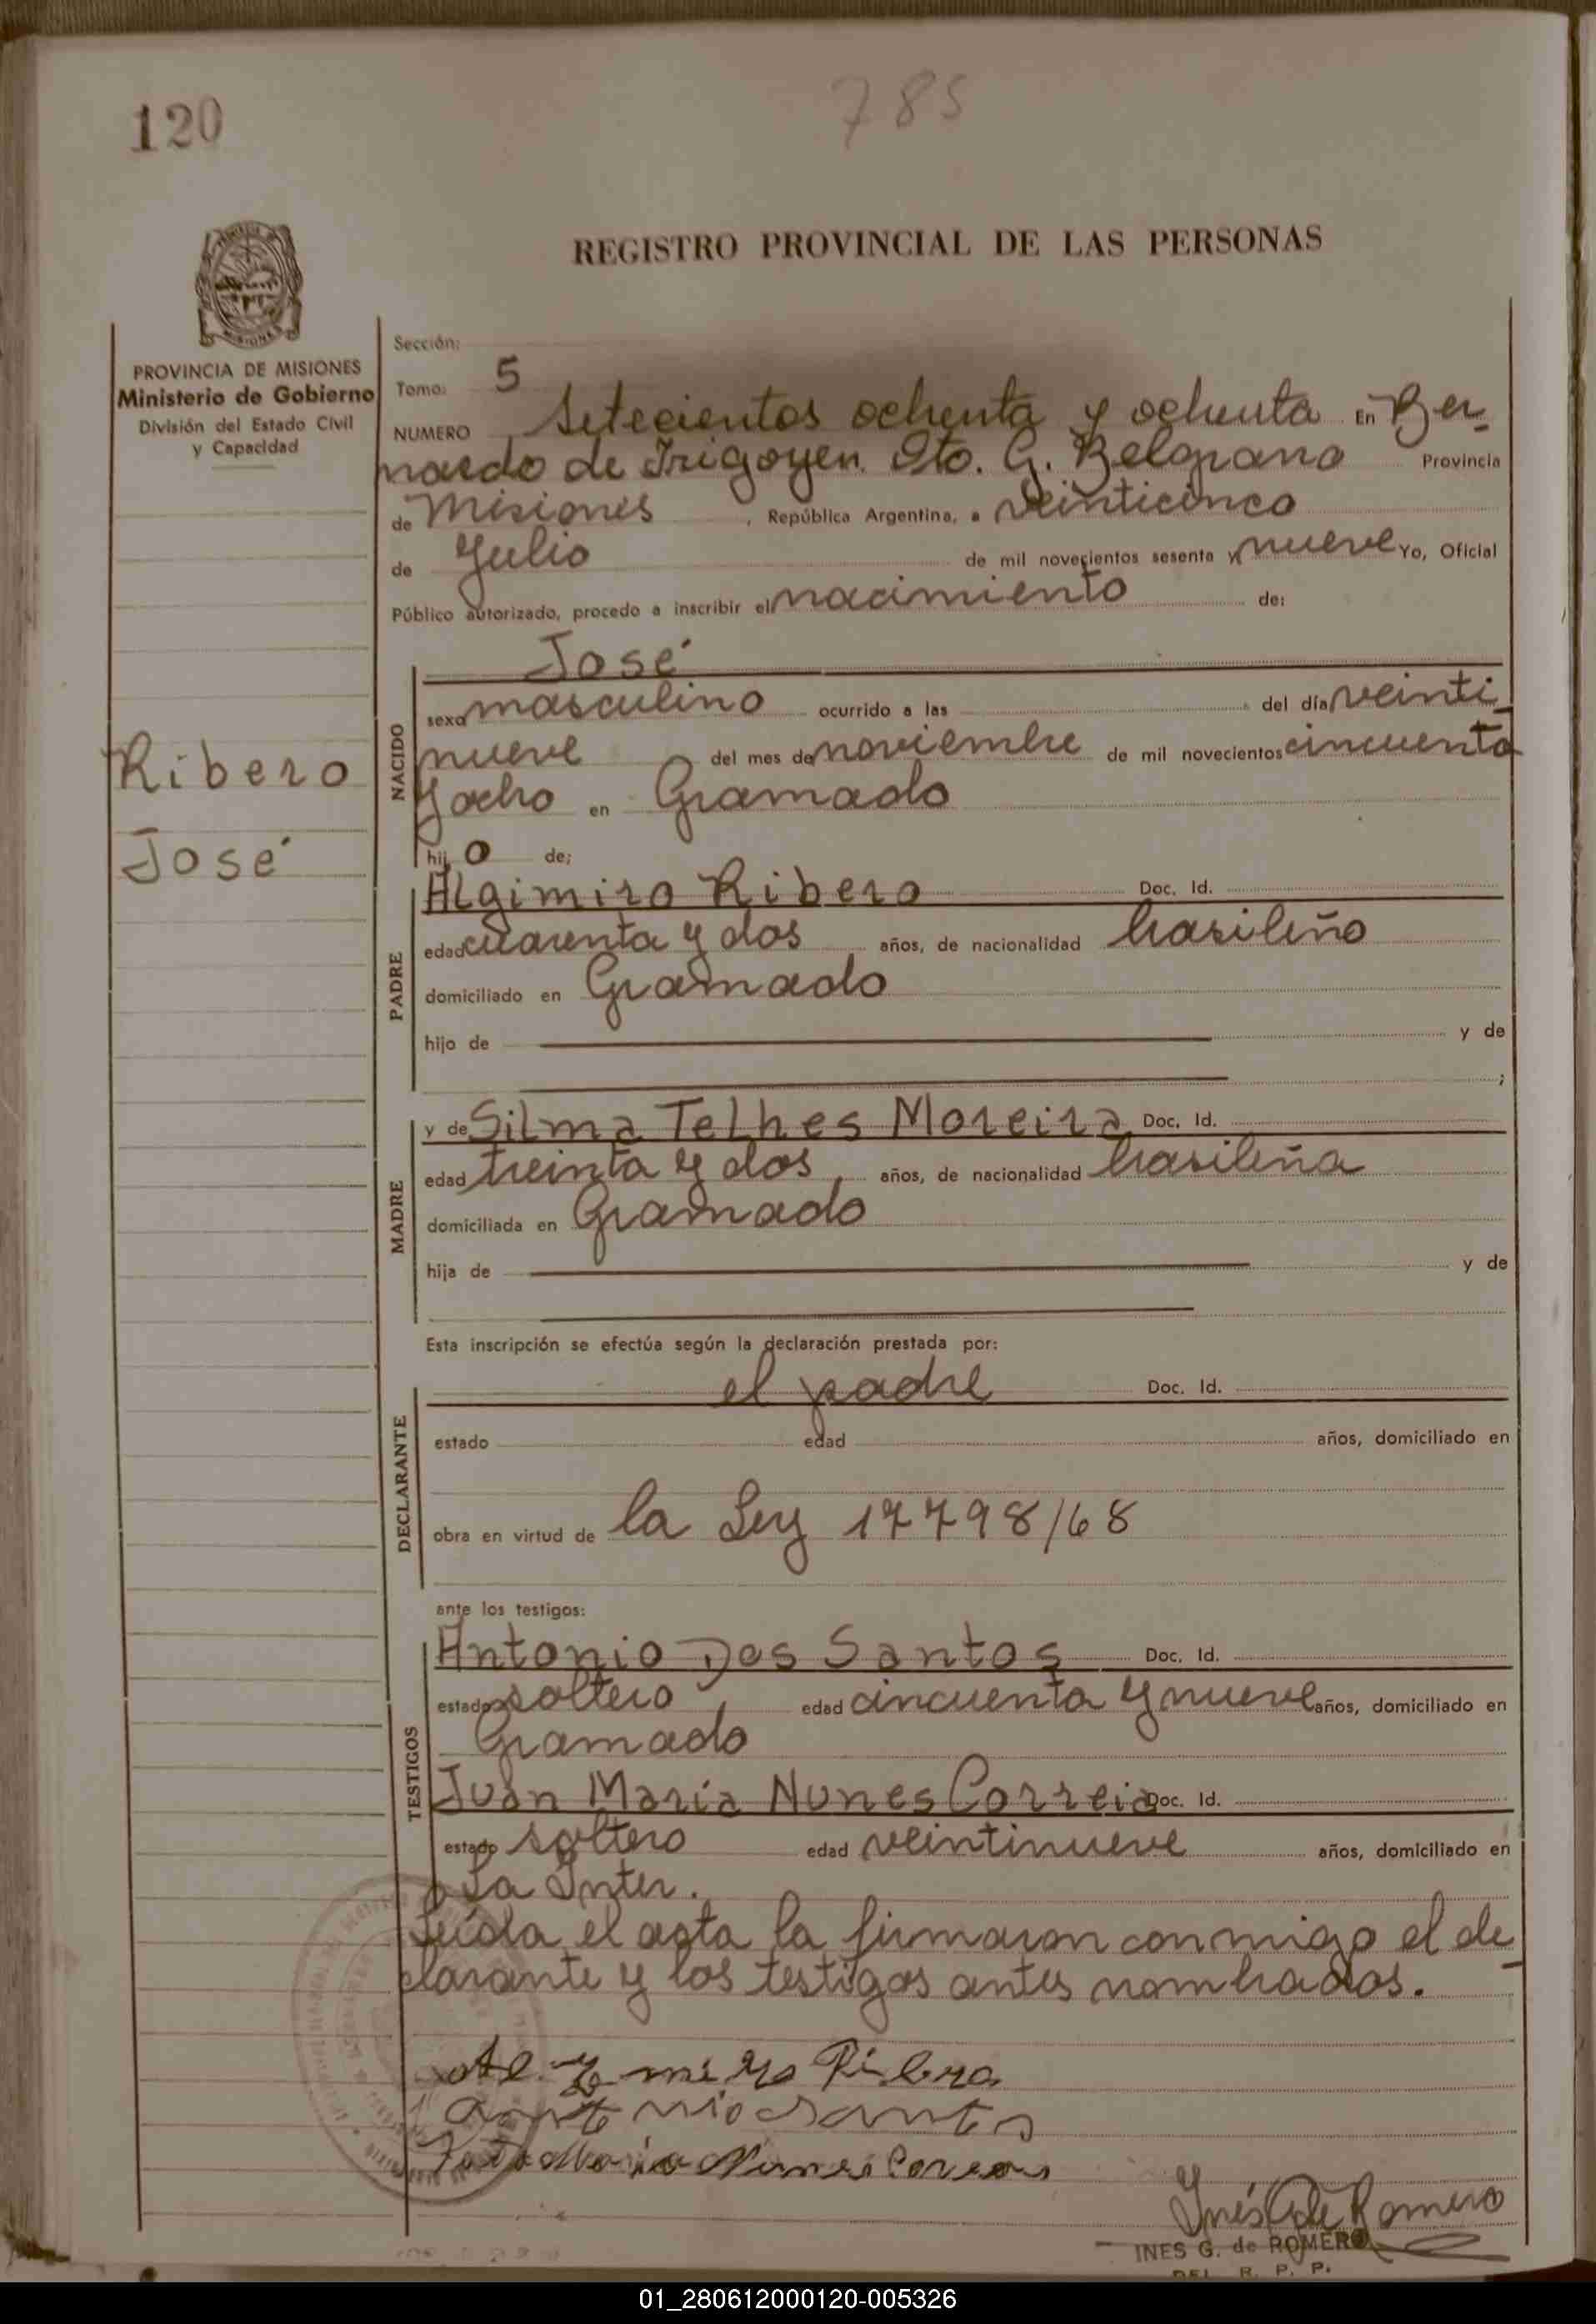 120
785
REGISTRO PROVINCIAL DE LAS PERSONAS
MISIONES
PROVINCIA DE MISIONES
Ministerio de Gobierno
División del Estado Civil
y Capacidad
Sección:
Tomo: 5
NUMERO Setecientos ochenta y ochenta En Ber-
nardo de Irigoyen. Dto. G. Belgrano Provincia
de Misiones, República Argentina, a veinticinco
de Julio de mil novecientos sesenta y nueve Yo, Oficial
Público autorizado, procedo a inscribir el nacimiento de:
José
NACIDO
sexo masculino ocurrido a las del día veinti-
nueve del mes de noviembre de mil novecientos cincuenta
y ocho en Gramado
hijo de:
Ribero
José
PADRE
Algimiro Ribero Doc. Id.
edad cuarenta y dos años, de nacionalidad brasileño
domiciliado en Gramado
hijo de y de
;
MADRE
y de Silma Telhes Moreira Doc. Id.
edad treinta y dos años, de nacionalidad brasileña
domiciliada en Gramado
hija de y de
Esta inscripción se efectúa según la declaración prestada por:
DECLARANTE
el padre Doc. Id.
estado edad años, domiciliado en
obra en virtud de la Ley 17798/68
ante los testigos:
TESTIGOS
Antonio Dos Santos Doc. Id.
estado soltero, edad cincuenta y nueve años, domiciliado en
Gramado
Juan María Nunes Correia Doc. Id.
estado soltero edad veintinueve años, domiciliado en
La Inter.
Leída el acta la firmaron conmigo el de-
clarante y los testigos antes nombrados.
Antonio Santos
Maria Nunes
Inés G de Romero
INES G. de ROMERO
DEL. R. P. P.
01_280612000120-005326